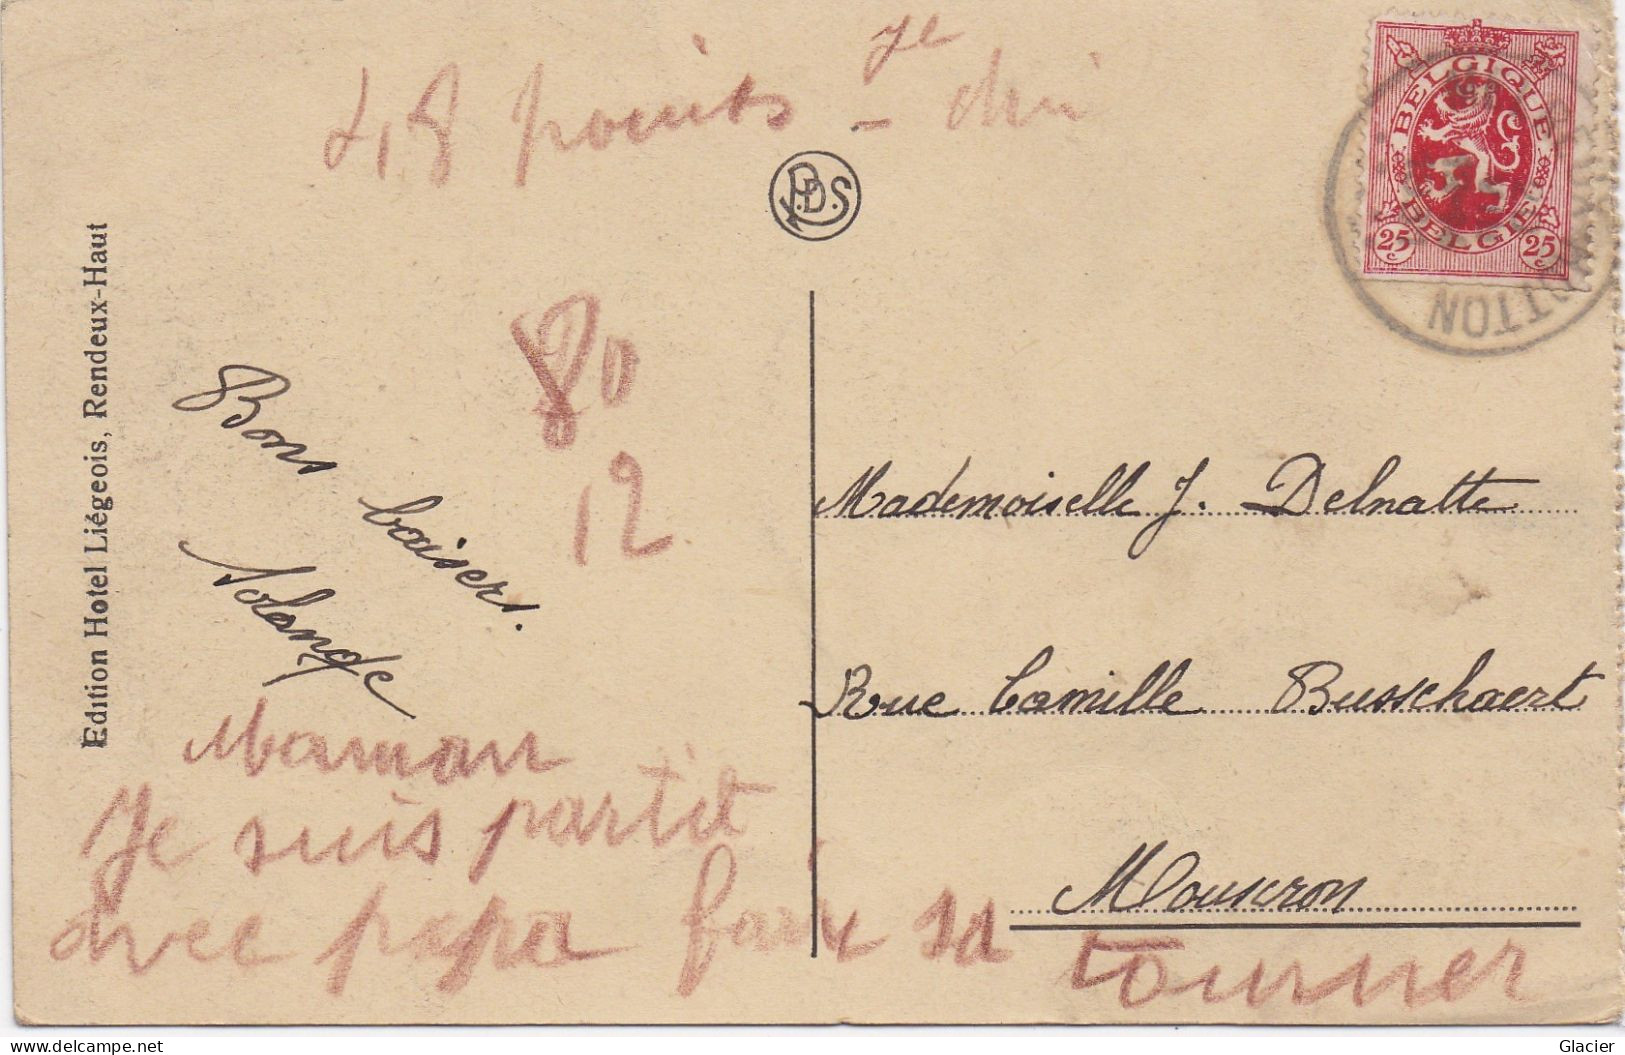 48 points - je
BELGIQUE
BELGIE
25 c 25 c
P.D.S
Edition Hotel Liégeois, Rendeux-Haut
80
12
Bons baisers.
Solange
Mademoiselle J. Delnatte
Rue Camille Busschaert
Mouscron
Maman
Je suis partit
avec papa faix sa tourner
HOTTON
Glacier
delcampe.net